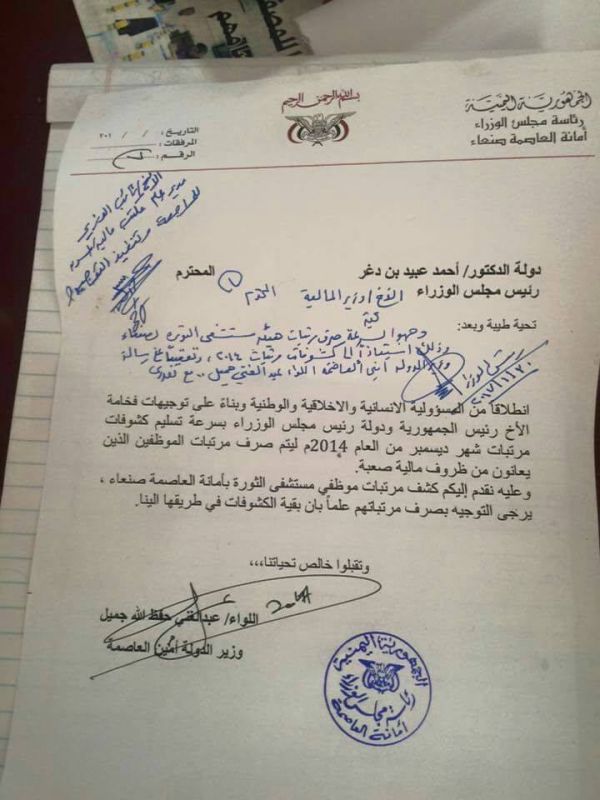 للمصف
قهم
بسم الله الرحمن الرحيم
الجمهورية اليمنية
رئاسة مجلس الوزراء
أمانة العاصمة صنعاء
التاريخ: / / ٢٠١
المرفقات:
الرقم:
مدير عام مكتب مالية
دولة الدكتور/ أحمد عبيد بن دغر المحترم
رئيس مجلس الوزراء
الأخ / وزير المالية المحترم
تحية طيبة وبعد:
تحية
وجهوا بسرعة صرف مرتبات هيئة مستشفى الثورة بصنعاء
وذلك استناداً إلى كشوفات مرتبات ٢٠١٤،
وزير الدولة أمين العاصمة اللواء عبدالغني جميل .. مع تقديري
رئيس الوزراء
انطلاقا من المسؤولية الانسانية والاخلاقية والوطنية وبناءً على توجيهات فخامة
الأخ رئيس الجمهورية ودولة رئيس مجلس الوزراء بسرعة تسليم كشوفات
مرتبات شهر ديسمبر من العام 2014م ليتم صرف مرتبات الموظفين الذين
يعانون من ظروف مالية صعبة.
وعليه نقدم إليكم كشف مرتبات موظفي مستشفى الثورة بأمانة العاصمة صنعاء ،
يرجى التوجيه بصرف مرتباتهم علماً بان بقية الكشوفات في طريقها الينا.
وتقبلوا خالص تحياتنا،،،
اللواء/ عبدالغني حفظ الله جميل
وزير الدولة أمين العاصمة
الجمهورية اليمنية
رئاسة مجلس الوزراء
أمانة العاصمة